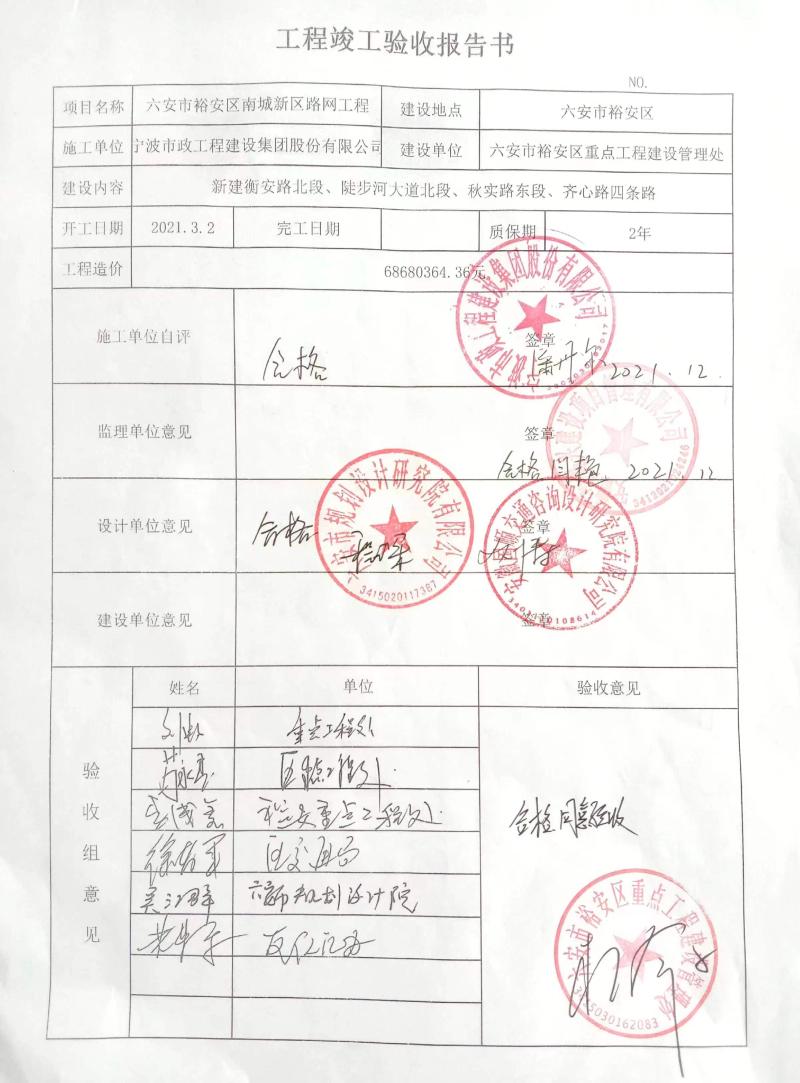 工程竣工验收报告书
NO.
项目名称 六安市裕安区南城新区路网工程 建设地点 六安市裕安区
施工单位 宁波市政工程建设集团股份有限公司 建设单位 六安市裕安区重点工程建设管理处
建设内容 新建衡安路北段、陡步河大道北段、秋实路东段、齐心路四条路
开工日期 2021.3.2 完工日期 质保期 2年
工程造价 68680364.36元
施工单位自评 合格 签章 2021.12.
宁波市政工程建设集团股份有限公司
监理单位意见 签章
合格 2021.12
建设项目管理有限公司
设计单位意见 合格 签章
六安市规划设计研究院有限公司
3415020117387
交通咨询设计研究院有限公司
建设单位意见 签章
验收组意见 姓名 单位 验收意见
重点工程处
区重点工程处
裕安重点工程处
区交通局
吴 六安市规划设计院
合格同意验收
六安市裕安区重点工程建设管理处
3415030162083